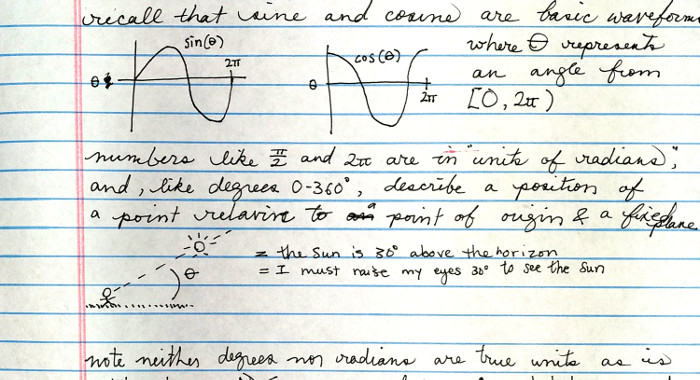 recall that sine and cosine are basic waveforms
sin(θ)
2π
θ
cos(θ)
θ
2π
where θ represents
an angle from
[0, 2π)
numbers like π/2 and 2π are in "units of radians",
and, like degrees 0-360°, describe a position of
a point relative to a point of origin & a fixed plane
θ
= the sun is 30° above the horizon
= I must raise my eyes 30° to see the sun
note neither degrees nor radians are true units as is